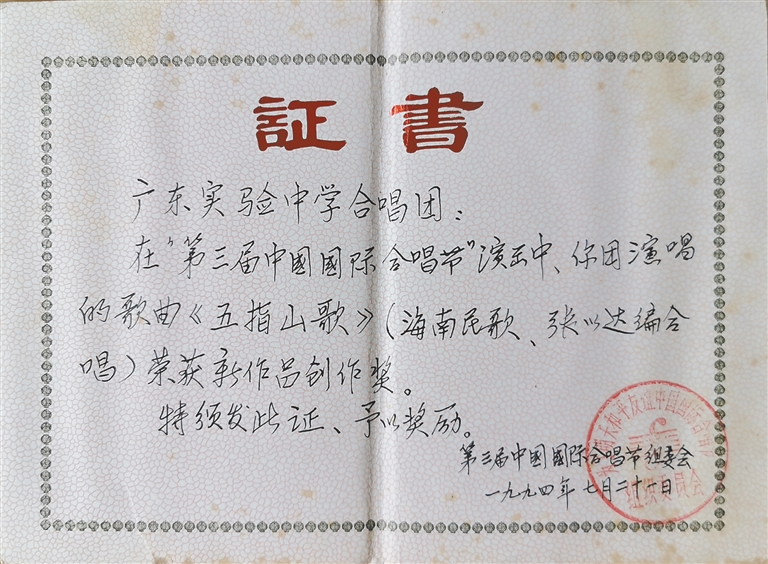 証書
广东实验中学合唱团:
在"第三届中國國际合唱节"演出中、你团演唱
的歌曲《五指山歌》(海南民歌、张以达编合
唱)荣获新作品创作奖。
特颁发此证、予以奖励。
第三届中國國际合唱节组委会
一九九四年七月二十六日
组织委员会